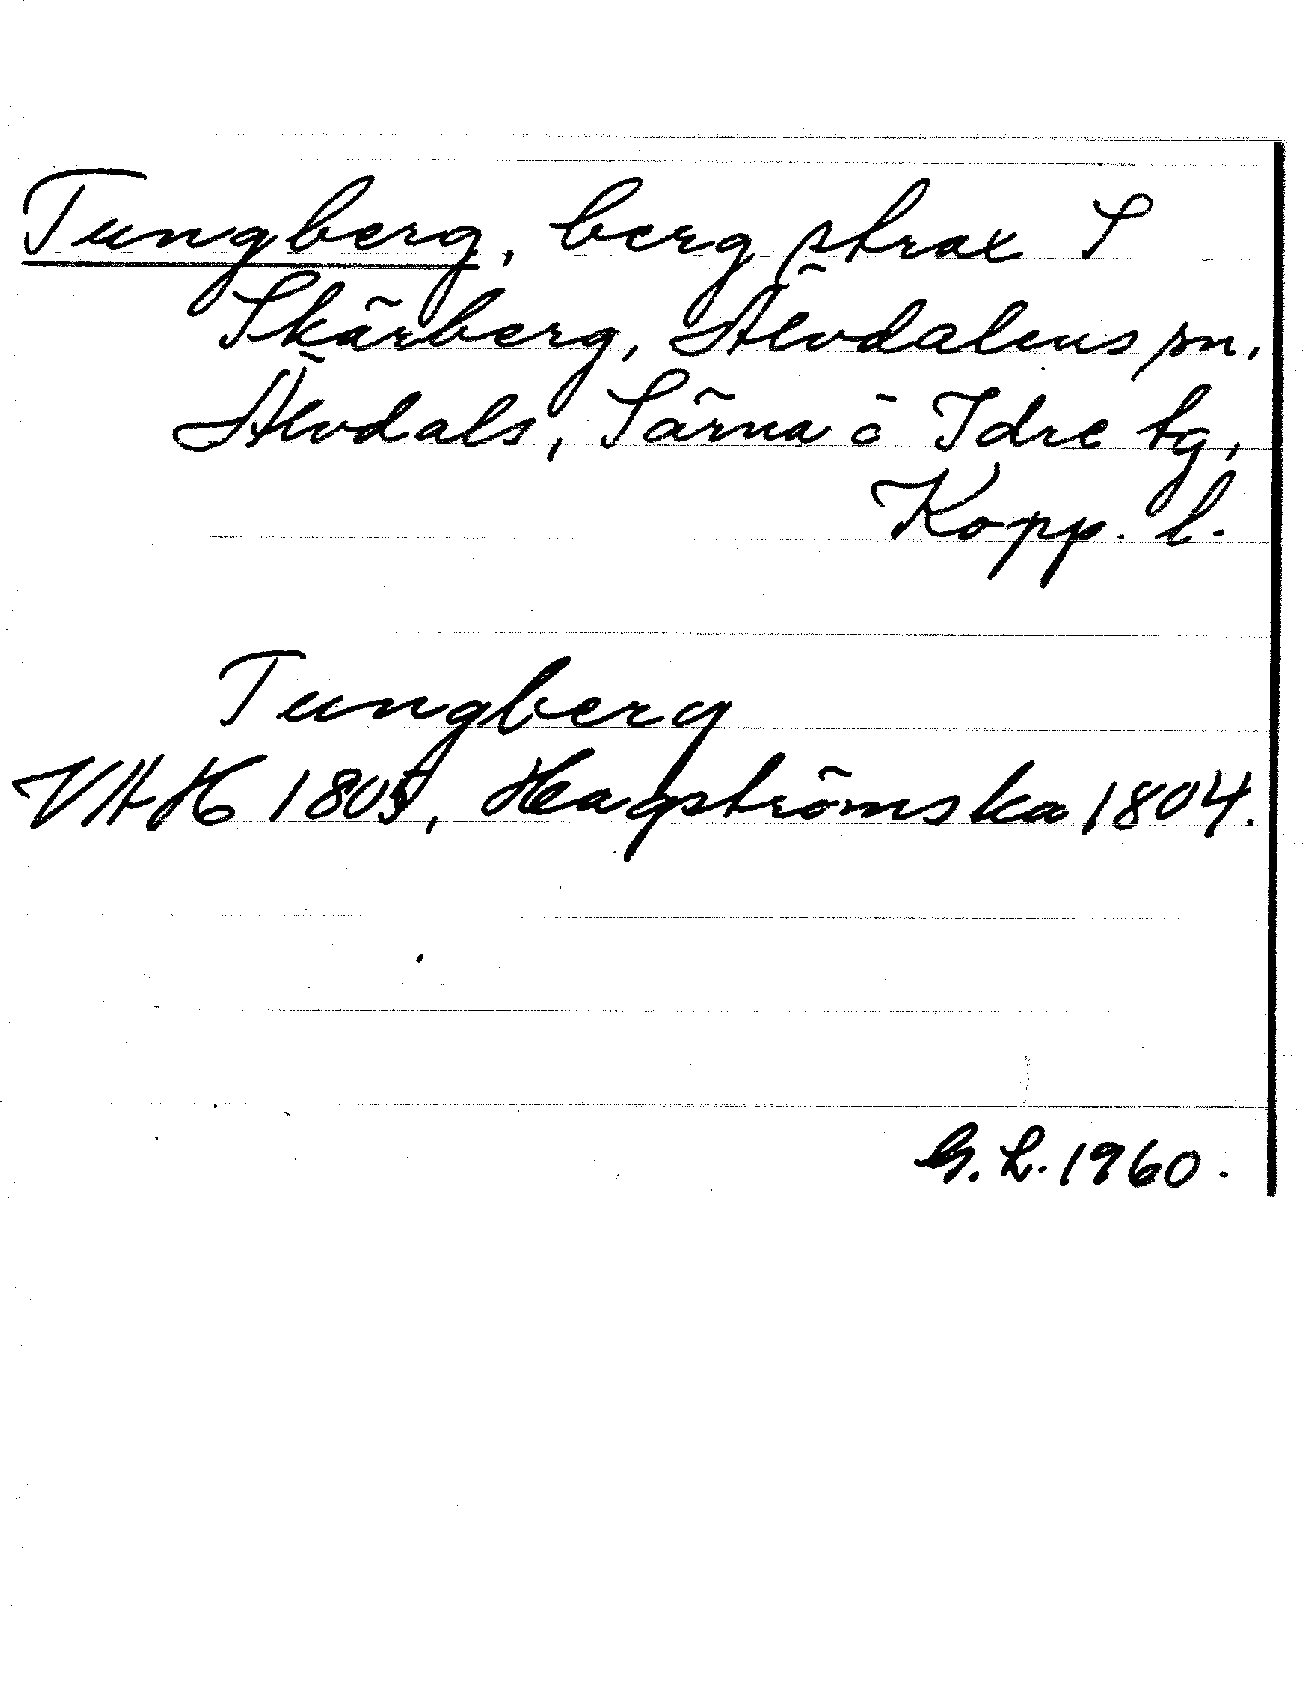 Tungberg, berg strax S
Skärberg, Älvdalens sn.
Älvdals, Särna o Idre tg,
Kopp. l.
Tungberg
VAH 1805, Hagströmska 1804.
G. L. 1960.